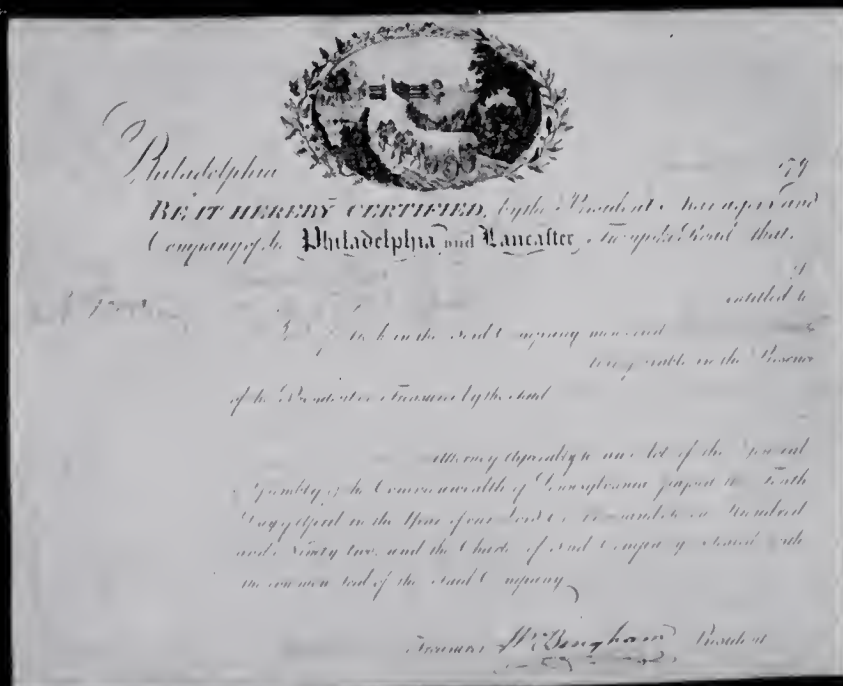 Philadelphia 179
BE IT HEREBY CERTIFIED, by the President Managers and
Company of the Philadelphia and Lancaster Turnpike Road that
is
entitled to
in the said Company numbered
transferable in the Presence
of the President or Treasurer by the said
Attorney Agreeably to an Act of the General
Assembly of the Commonwealth of Pennsylvania passed the Ninth
Day of April in the Year of our Lord One Thousand Seven Hundred
and Ninety two, and the Charter of said Company Sealed with
the common Seal of the said Company
Treasurer Wm Bingham President